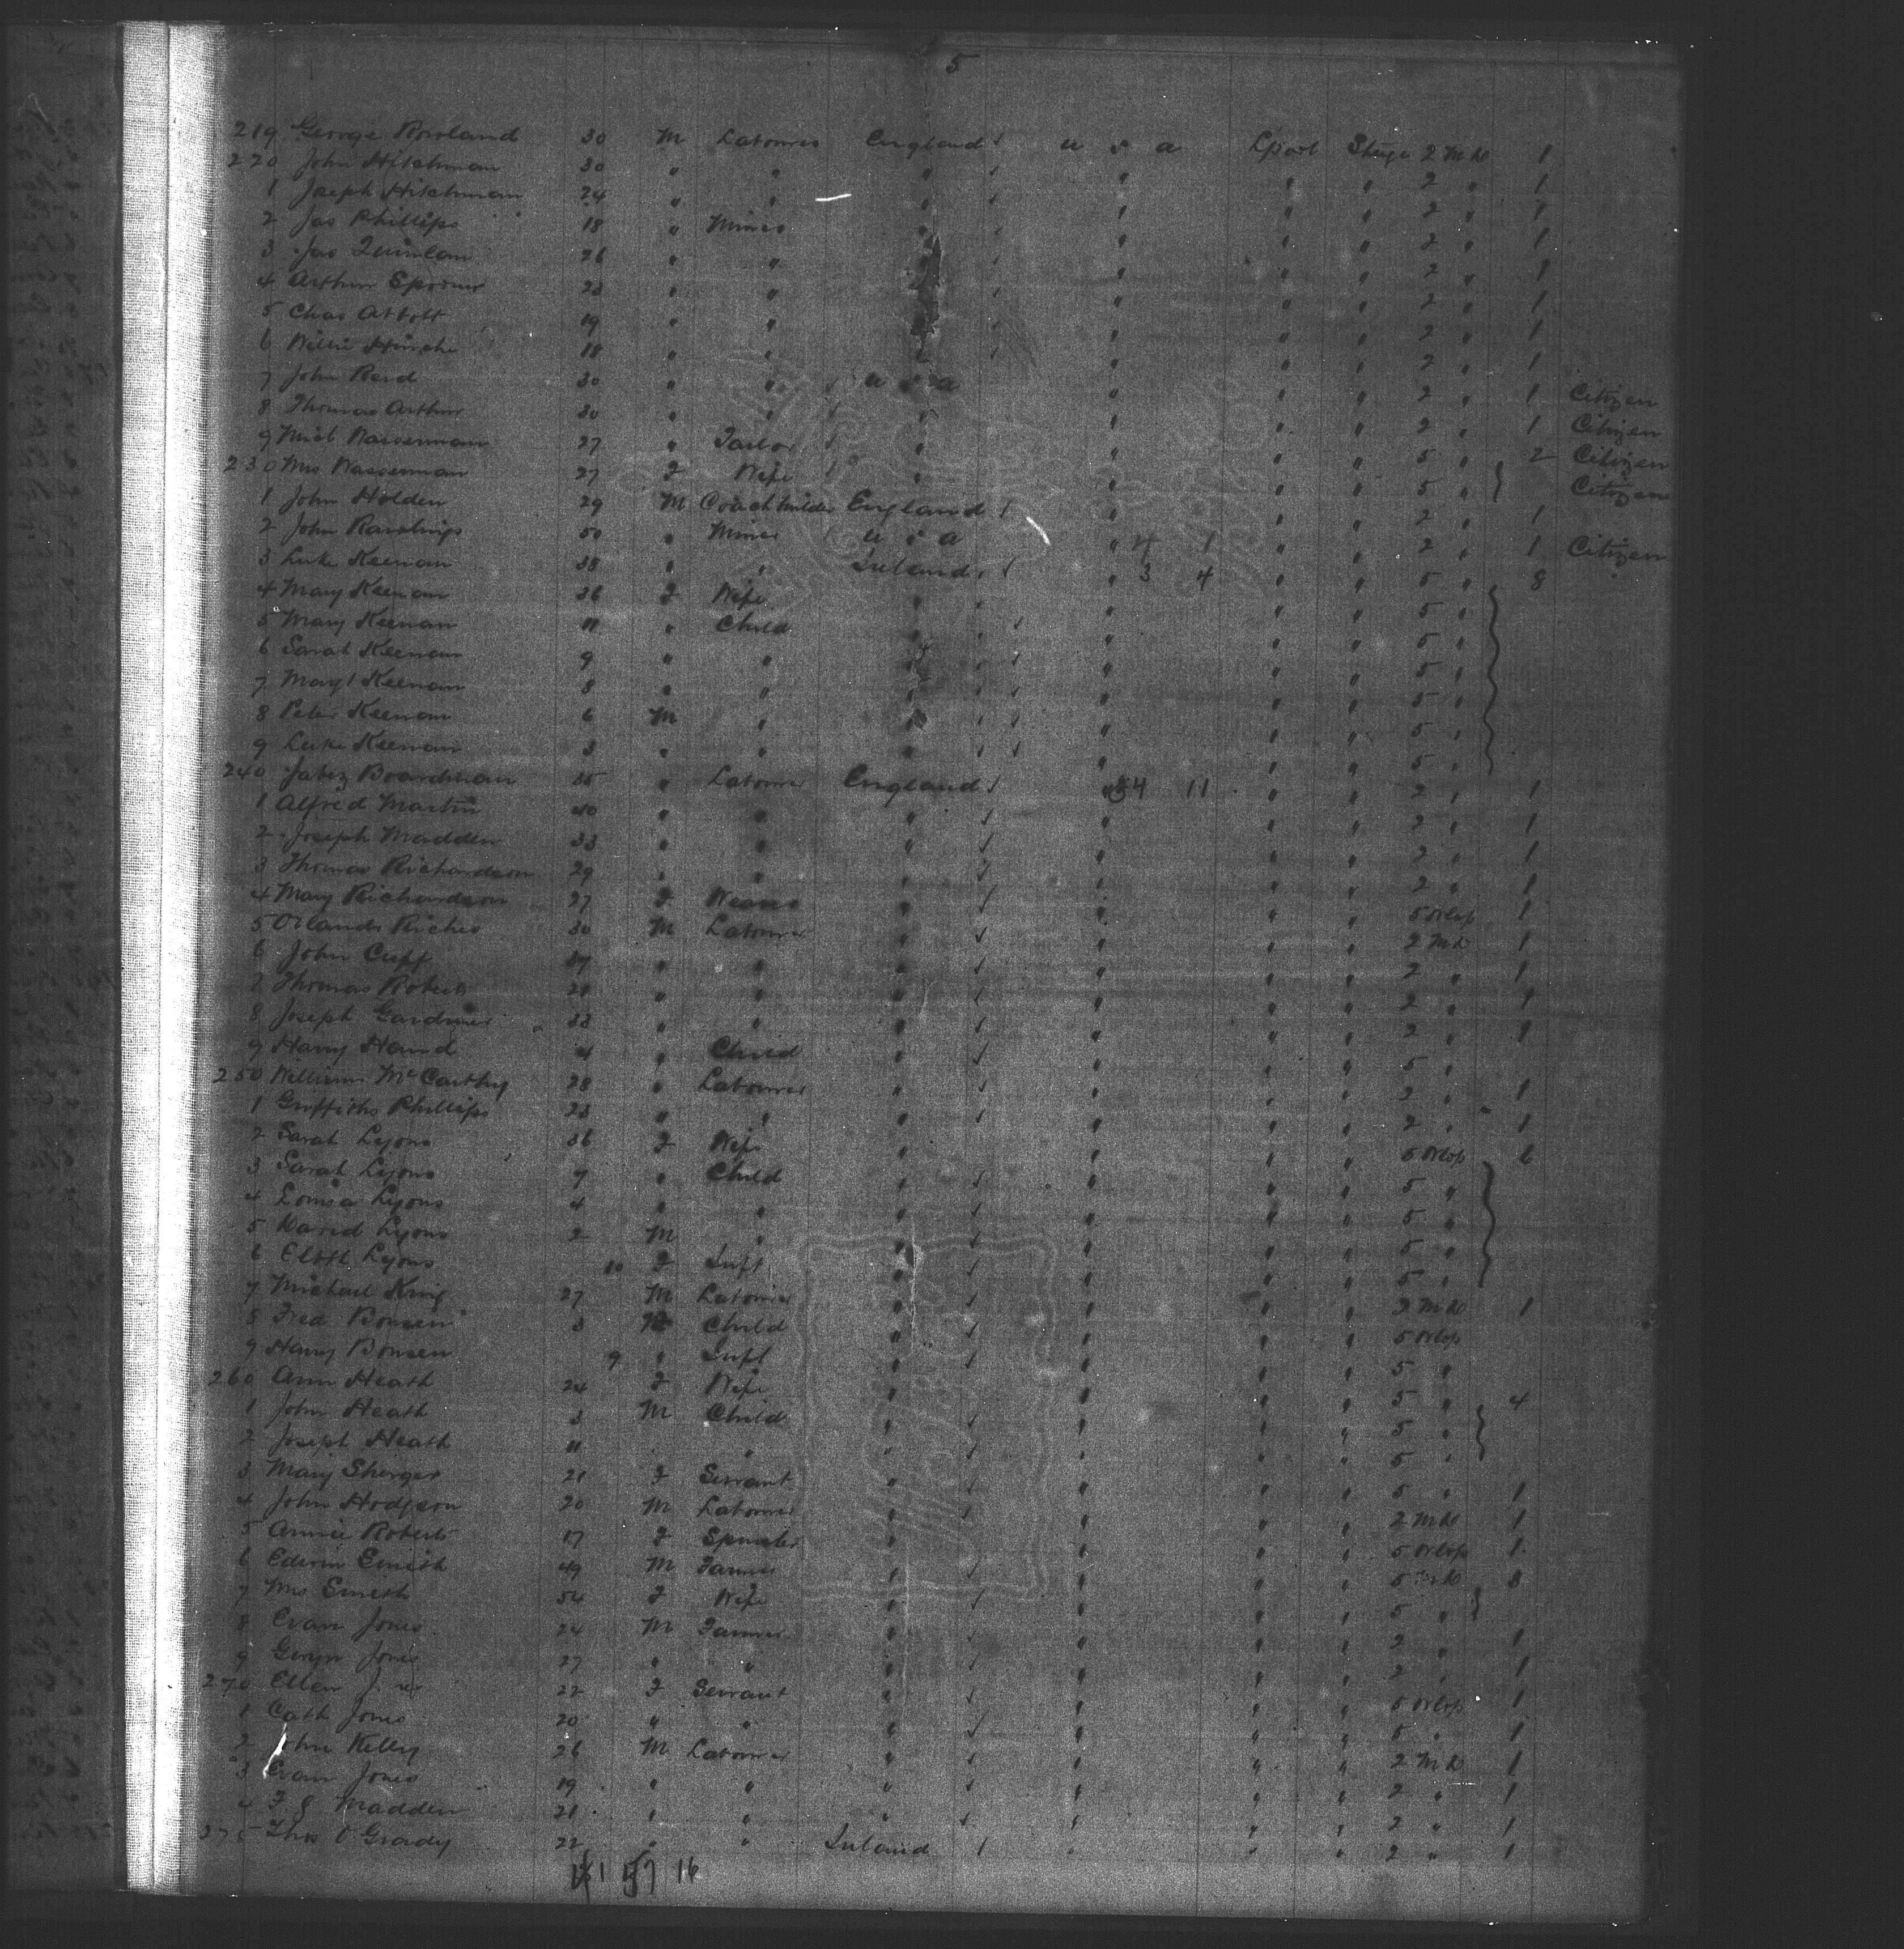 5
219 George Rowland 30 M Labourer England u s a Lpool Stuge 2 M D 1
220 John Hitchman 30 " " " " " " 2 " 1
1 Joseph Hitchman 24 " " " " " " 2 " 1
2 Jas Phillips 18 " Miner " " " " 2 " 1
3 Jas Quinlan 26 " " " " " " 2 " 1
4 Arthur 23 " " " " " " 2 " 1
5 Chas Abbott 19 " " " " " " 2 " 1
6 Willie 18 " " " " " " 2 " 1
7 John Reid 30 " " u s a " " " 2 " 1 Citizen
8 Thomas Arthur 30 " " " " " " 2 " 1 Citizen
9 Michl Wasserman 27 " Tailor " " " " 5 " 2 Citizen
230 Mrs Wasserman 27 F Wife " " " " 5 " Citizen
1 John Holden 29 M Coachbuilder England " " " 2 " 1
2 John Rawlings 50 " Miner u s a " 4 1 " " 2 " 1 Citizen
3 Luke Keenan 38 " " Ireland " 3 4 " " 5 " 8
4 Mary Keenan 36 F Wife " " " " 5 "
5 Mary Keenan 11 " Child " " " " 5 "
6 Sarah Keenan 9 " " " " " " 5 "
7 Margt Keenan 8 " " " " " " 5 "
8 Peter Keenan 6 M " " " " " 5 "
9 Luke Keenan 3 " " " " " " 5 "
240 Jabez Boardman 15 " Labourer England " 34 11 " " 2 " 1
1 Alfred Martin 40 " " " " " " 2 " 1
2 Joseph Madden 33 " " " " " " 2 " 1
3 Thomas Richardson 29 " " " " " " 2 " 1
4 Mary Richardson 27 F Weaver " " " " 5 Orlop 1
5 Orlando Riches 30 M Labourer " " " " 2 M D 1
6 John Cuff " " " " " " 2 " 1
7 Thomas Roberts 21 " " " " " " 2 " 1
8 Joseph Gardner 33 " " " " " " 2 " 1
9 Harry Hand 4 " Child " " " " 5 "
250 William McCarthy 28 " Labourer " " " " 2 " 1
1 Griffiths Phillips 23 " " " " " " 2 " 1
2 Sarah Lyons 36 F Wife " " " " 5 Orlop 6
3 Sarah Lyons 7 " Child " " " " 5 "
4 Louisa Lyons 4 " " " " " " 5 "
5 David Lyons 2 M " " " " " 5 "
6 Elbth Lyons 10 F Inft " " " " 5 "
7 Michael King 27 M Labourer " " " " 2 M D 1
8 Fred Bonsen 3 M Child " " " " 5 Orlop
9 Harry Bonsen 9 " Inft " " " " 5 "
260 Ann Heath 24 F Wife " " " " 5 " 4
1 John Heath 3 M Child " " " " 5 "
2 Joseph Heath 11 " " " " " 5 "
3 Mary 21 F Servant " " " " 5 " 1
4 John Hodgson 20 M Labourer " " " " 2 M D 1
5 Annie Roberts 17 F Spinster " " " " 5 Orlop 1
6 Edwin 49 M Farmer " " " " 5 M D 3
7 Mrs 54 F Wife " " " " 5 "
8 Evan Jones 24 M Farmer " " " " 2 " 1
9 Gwyn Jones 27 " " " " " " 2 " 1
270 Ellen 22 F Servant " " " " 5 Orlop 1
1 Cath Jones 20 " " " " " " 5 " 1
2 John Kelly 26 M Labourer " " " " 2 M D 1
3 Evan Jones 19 " " " " " " 2 " 1
4 Madden 21 " " " " " " 2 " 1
275 Thos O Grady 22 " " Ireland " " " 2 " 1